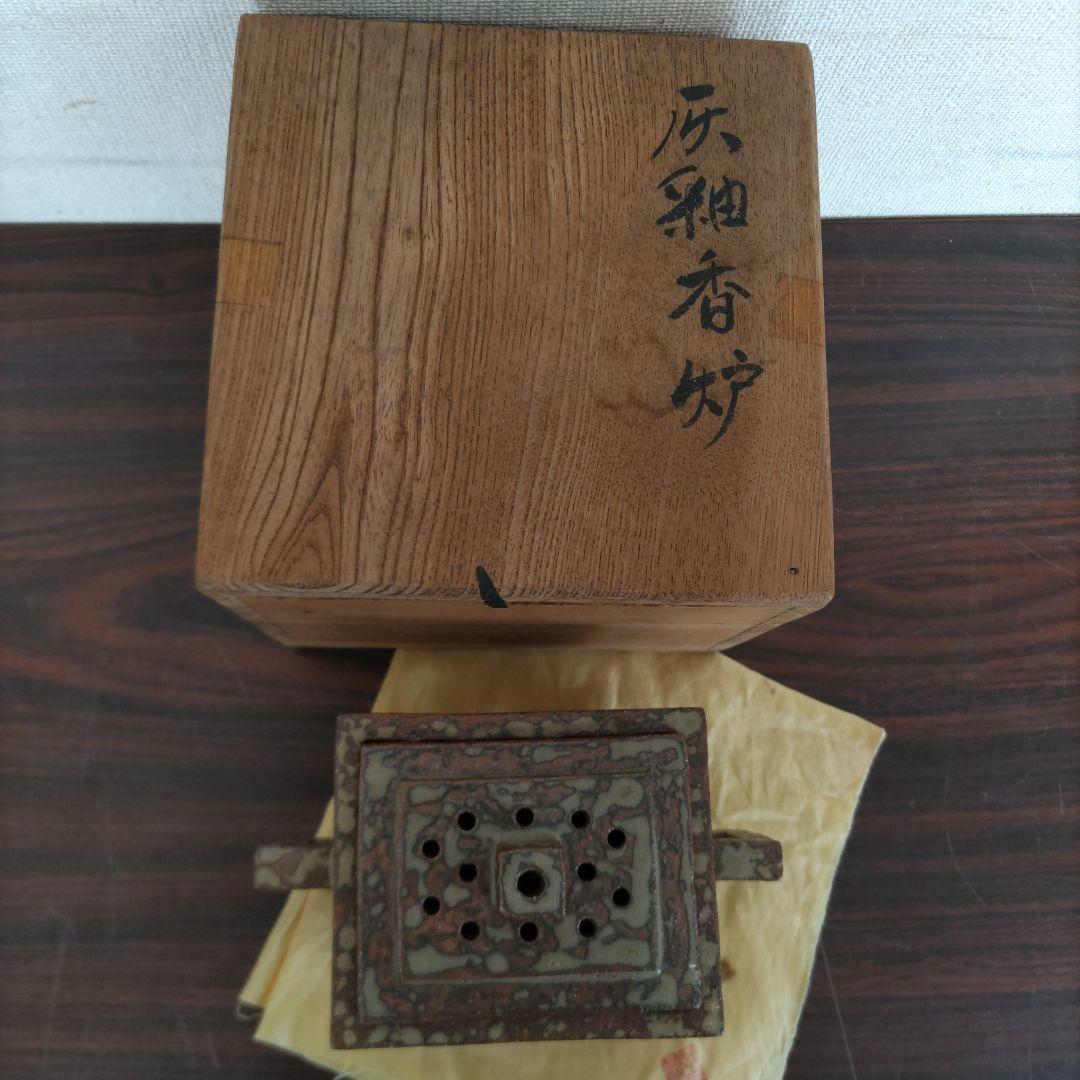 灰釉香炉